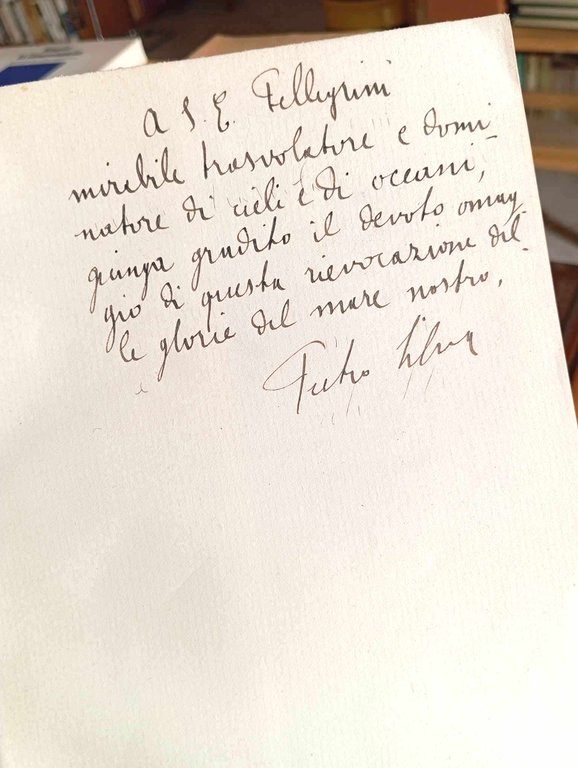 A S. E. Pellegrini
mirabile trasvolatore e domi-
natore di cieli e di oceani,
giunga gradito il devoto omag-
gio di questa rievocazione del-
le glorie del mare nostro.
Pietro Silva